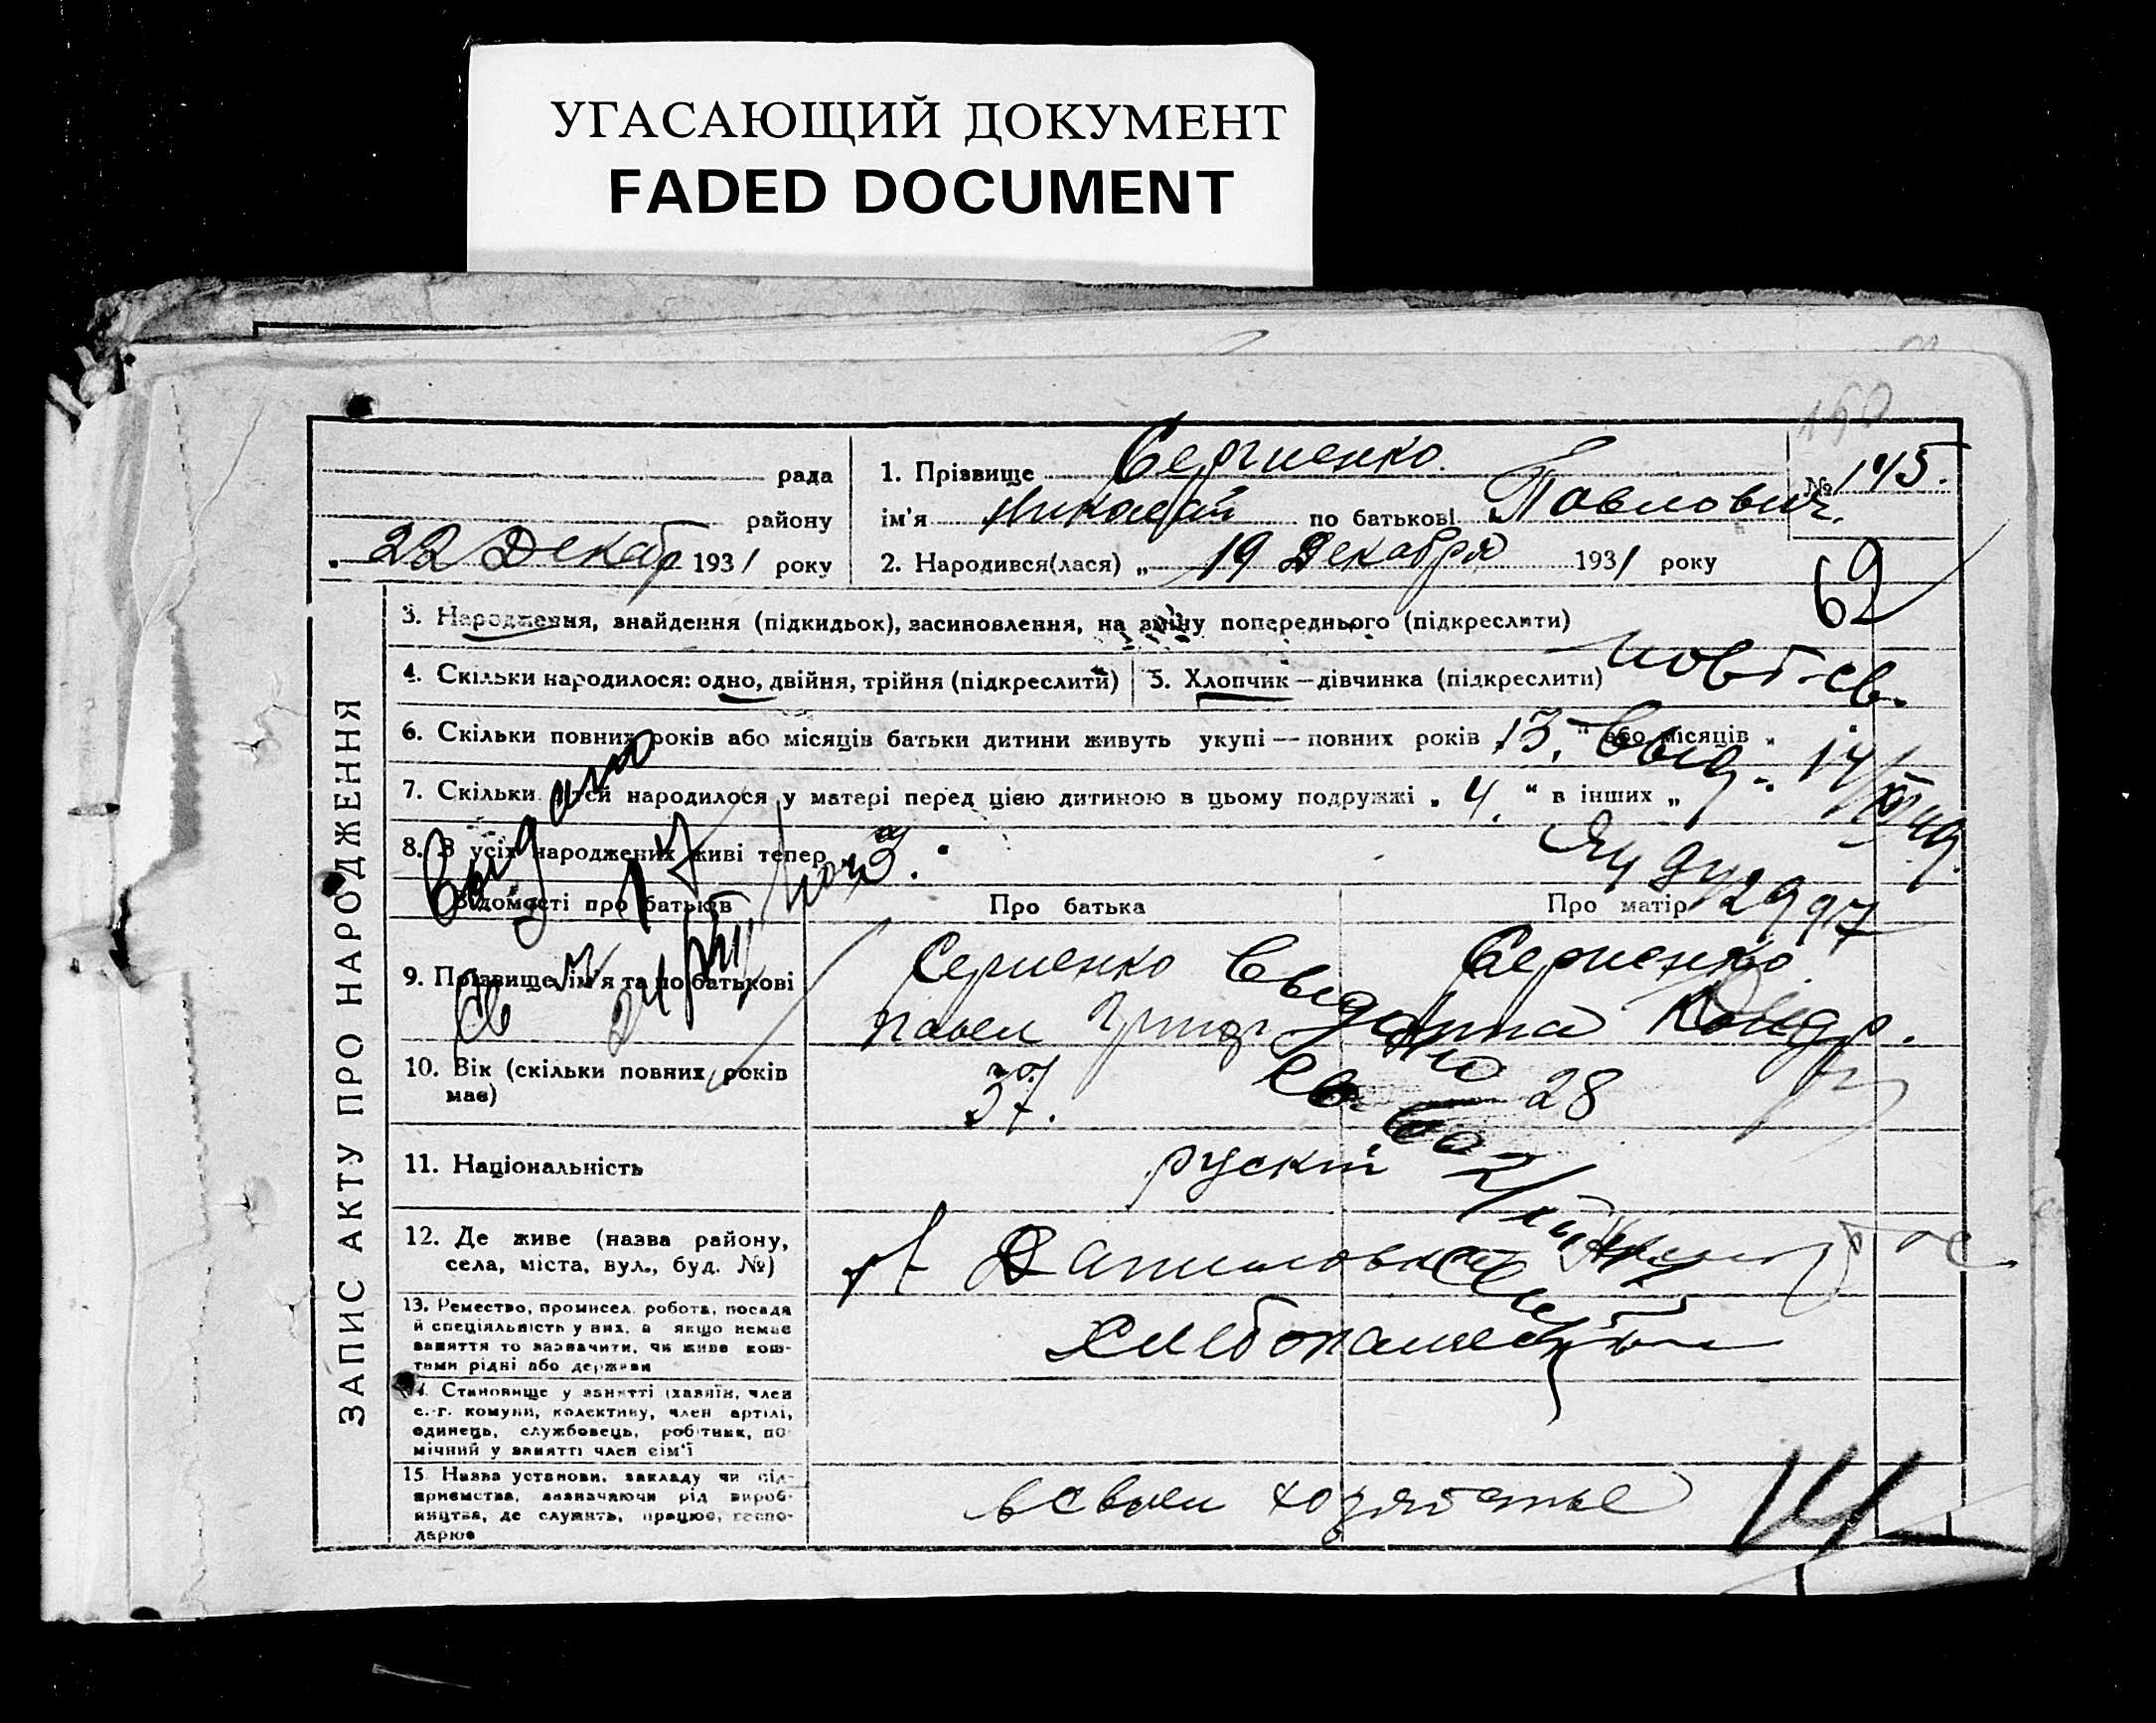 УГАСАЮЩИЙ ДОКУМЕНТ
FADED DOCUMENT
ЗАПИС АКТУ ПРО НАРОДЖЕННЯ
рада
району
22 Декабр 1931 року
1. Прізвище Сергиенко
ім'я Николай по батькові Павлович
№ 145.
2. Народився(лася) „ 19 Декабря 1931 року
62
3. Народження, знайдення (підкидьок), засиновлення, на зміну попереднього (підкреслити)
4. Скільки народилося: одно, двійня, трійня (підкреслити)
5. Хлопчик — дівчинка (підкреслити)
повт. св.
6. Скільки повних років або місяців батьки дитини живуть укупі — повних років 13. " або місяців „
7. Скільки дітей народилося у матері перед цією дитиною в цьому подружжі „ 4. " в інших „
8. З усіх народжених живі тепер 3.
Видано
Відомості про батьків
Про батька
Про матір
9. Прізвище, ім'я та по батькові
Сергиенко
Павел Григ
Сергиенко
Анна Кондр.
Выдано
св.
10. Вік (скільки повних років має)
37.
28
11. Національність
руский
12. Де живе (назва району, села, міста, вул., буд. №)
13. Ремество, промисел, робота, посада
й спеціяльність у них, а якщо немає
заняття то зазначити, чи живе кош-
тами рідні або держави
14. Становище у занятті (хазяїн, член
с.-г. комуни, колективу, член артілі,
одинець, службовець, робітник, по-
мічний у занятті член сім'ї
15. Назва установи, закладу чи під-
приємства, зазначаючи рід вироб-
ництва, де служить, працює, госпо-
дарює
в своем хозяйстве